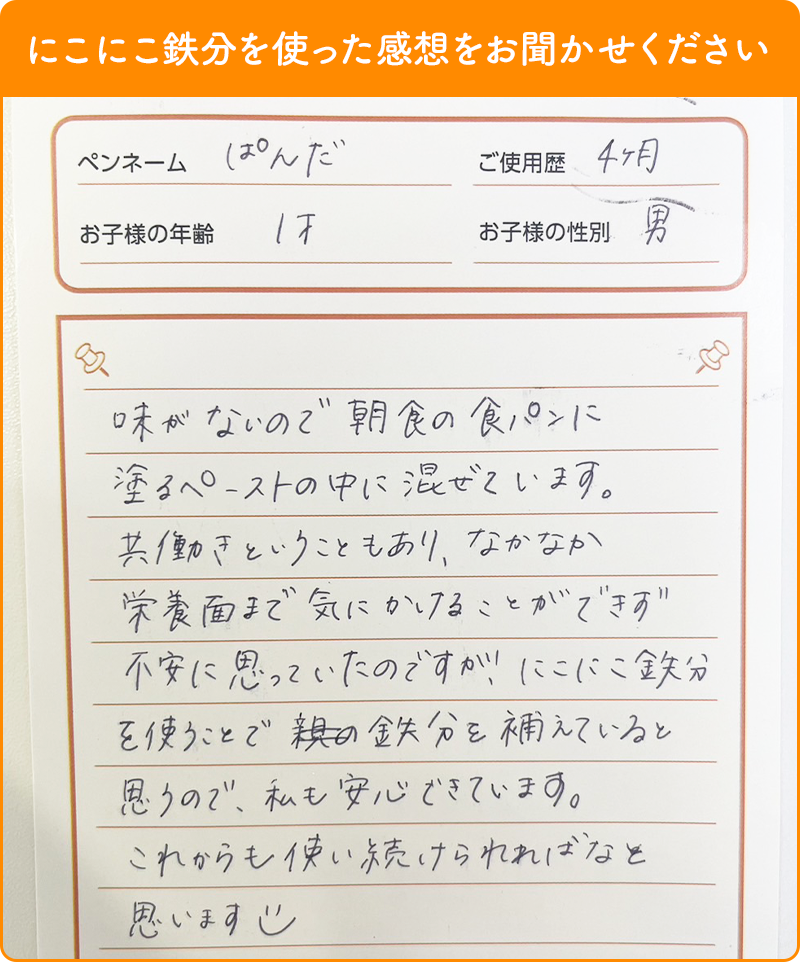 にこにこ鉄分を使った感想をお聞かせください
ペンネーム ぱんだ ご使用歴 4ヶ月
お子様の年齢 1才 お子様の性別 男
味がないので朝食の食パンに
塗るペーストの中に混ぜています。
共働きということもあり、なかなか
栄養面まで気にかけることができず
不安に思っていたのですが、にこにこ鉄分
を使うことで 鉄分を補えていると
思うので、私も安心できています。
これからも使い続けられればなと
思います